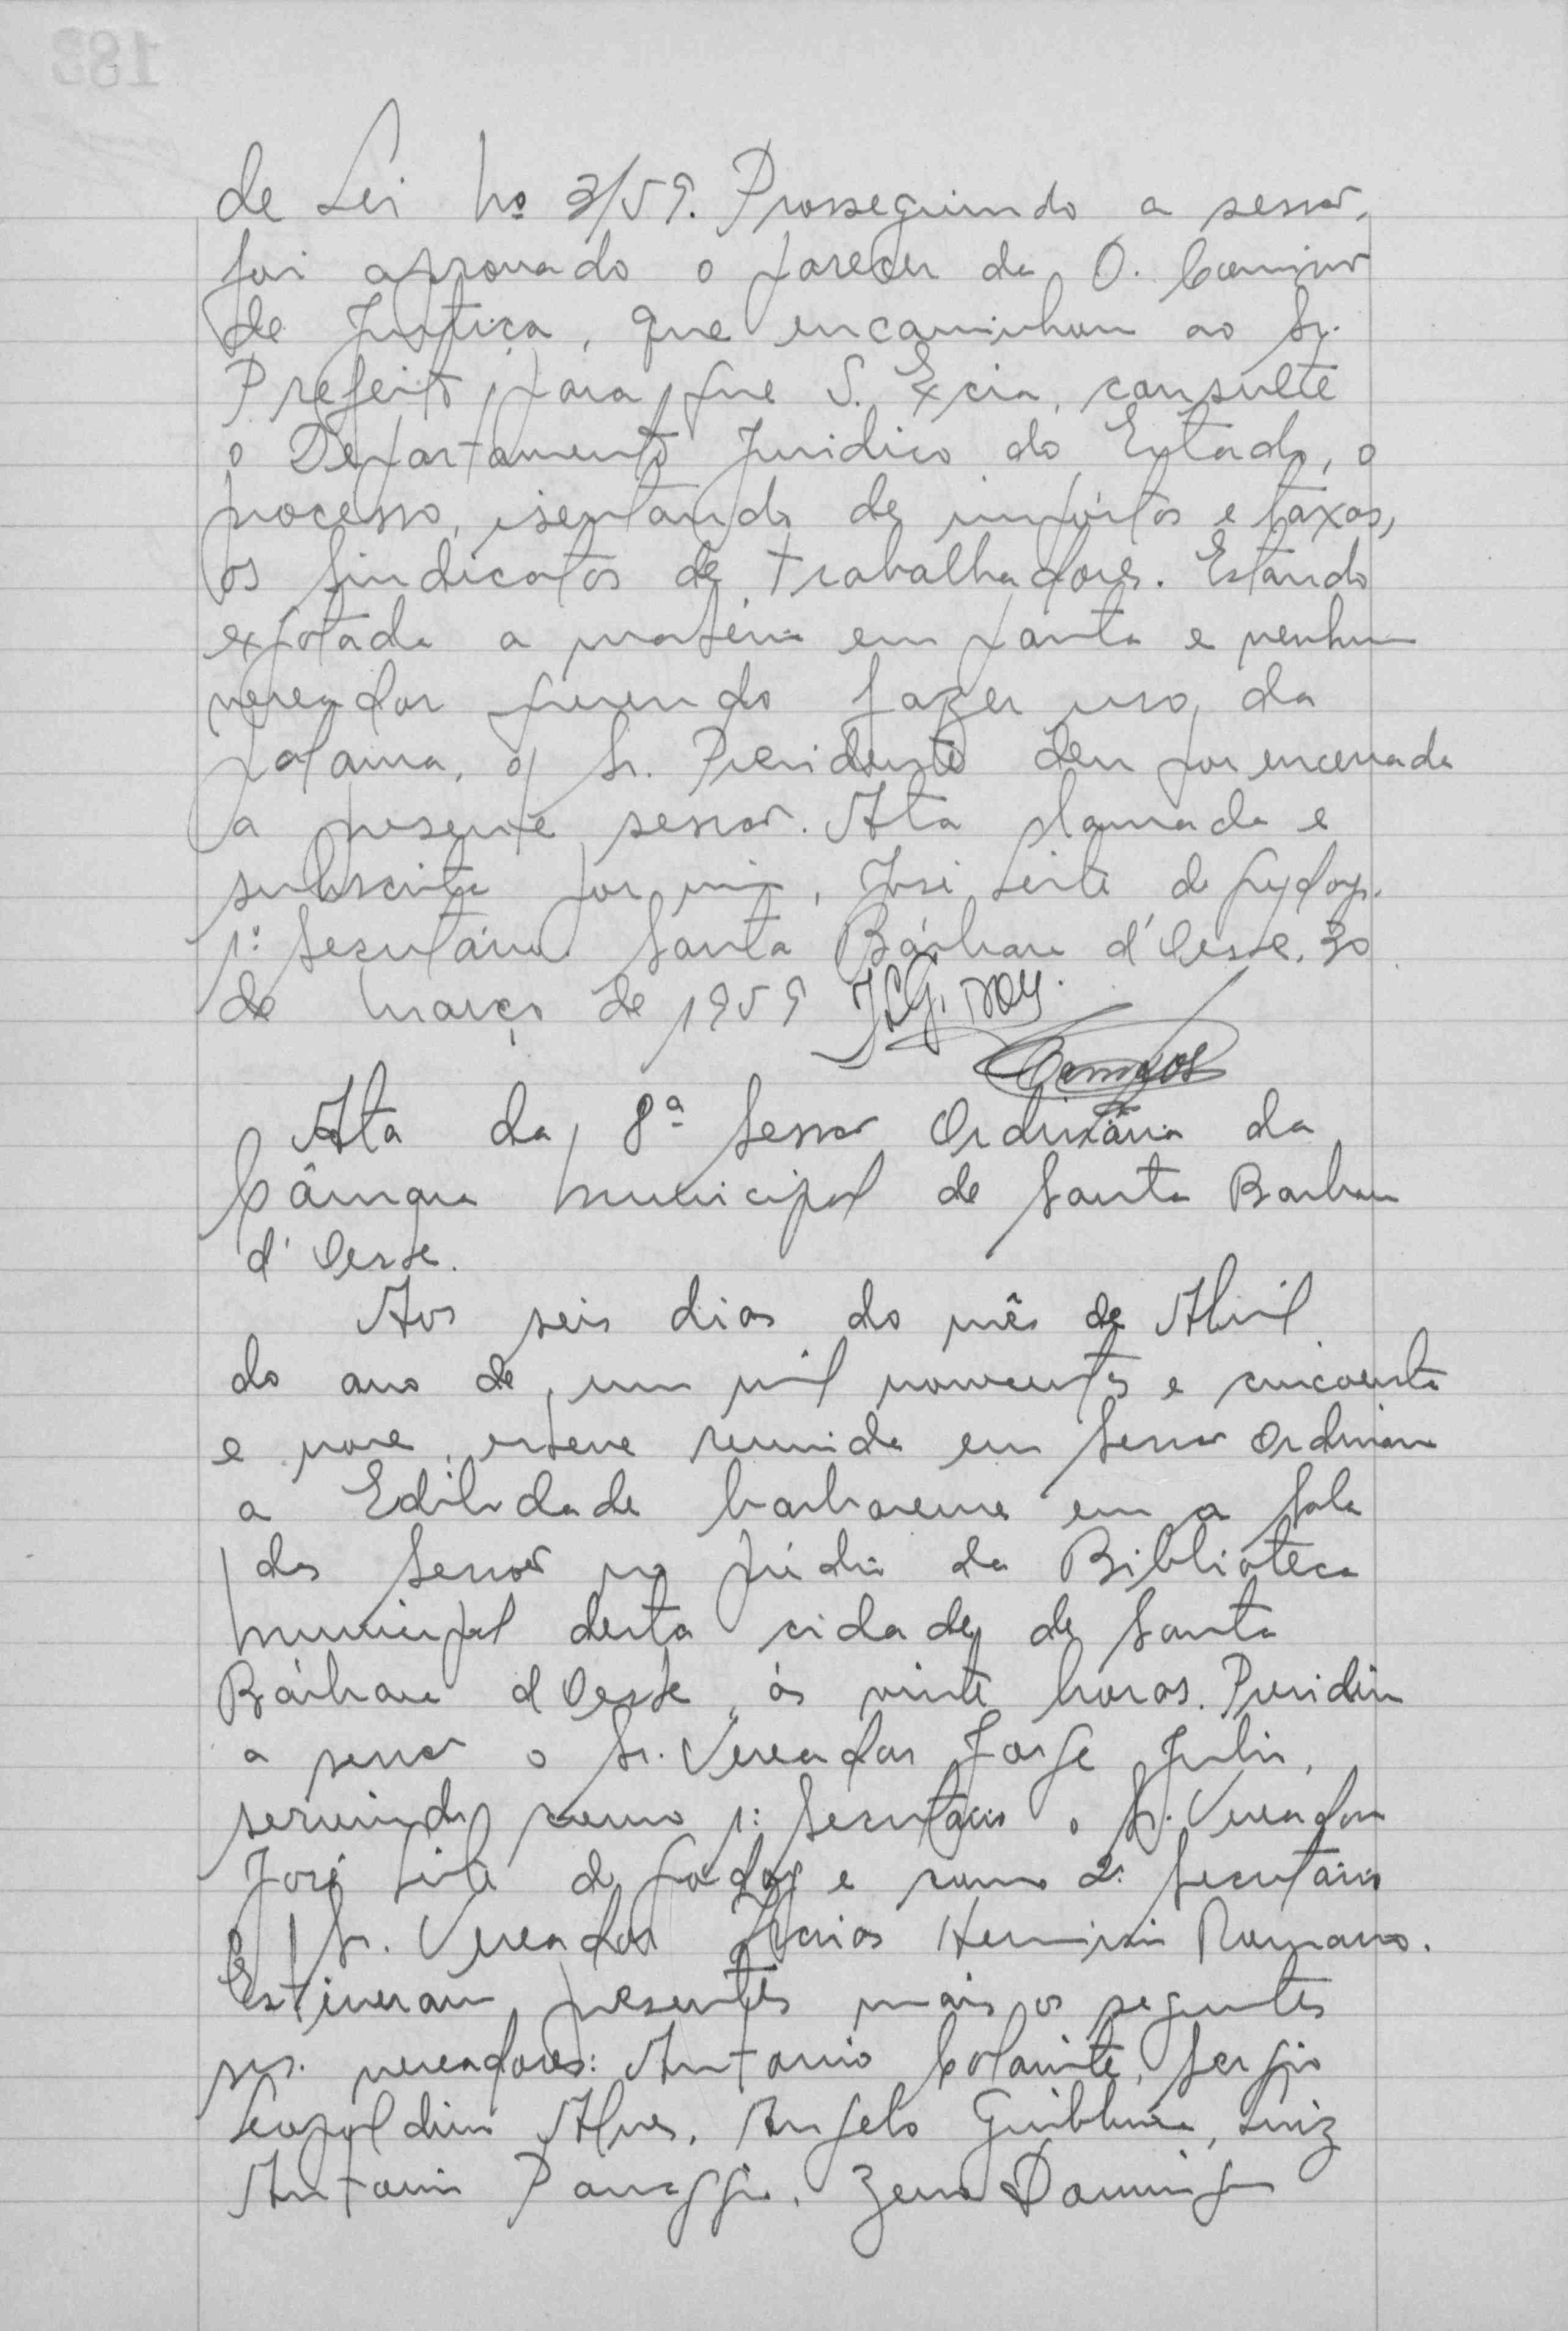 de Lei nº 3/59. Prosseguindo a sessão,
foi aprovado o parecer da D. Comissão
de Justiça, que encaminhou ao Sr.
Prefeito, para que S. Excia, consulte
o Departamento Juridico do Estado, o
processo, isentando de impôstos e taxas,
os Sindicatos de trabalhadores. Estando
exgotada a matéria em pauta e nenhum
vereador querendo fazer uso da
palavra, o Sr. Presidente deu por encerrada
a presente sessão. Ata lavrada e
subscrita por mim, José Leite de Godoy.
1º Secretário. Santa Bárbara d'Oeste, 30
de março de 1959 JLGodoy.
Ata da 8ª Sessão Ordinária da
Câmara Municipal de Santa Barbara
d'Oeste.
Aos seis dias do mês de Abril
do ano de um mil novecentos e cincoenta
e nove, esteve reunida em Sessão Ordinária
a Edilidade barbarense em a Sala
das Sessões no prédio da Biblioteca
Municipal desta cidade de Santa
Bárbara d'Oeste, ás vinte horas. Presidiu
a sessão o Sr. Vereador Jorge Julio,
servindo como 1º Secretário o Sr. Vereador
José Leite de Godoy e como 2º Secretário
o Sr. Vereador Herminio Romano.
Estiveram presentes mais os seguintes
srs. vereadores: Antonio Colaiute, Sergio
Leopoldino Alves, Angelo Guilherme, Luiz
Antonio Panaggio, Zeno Domingos
183